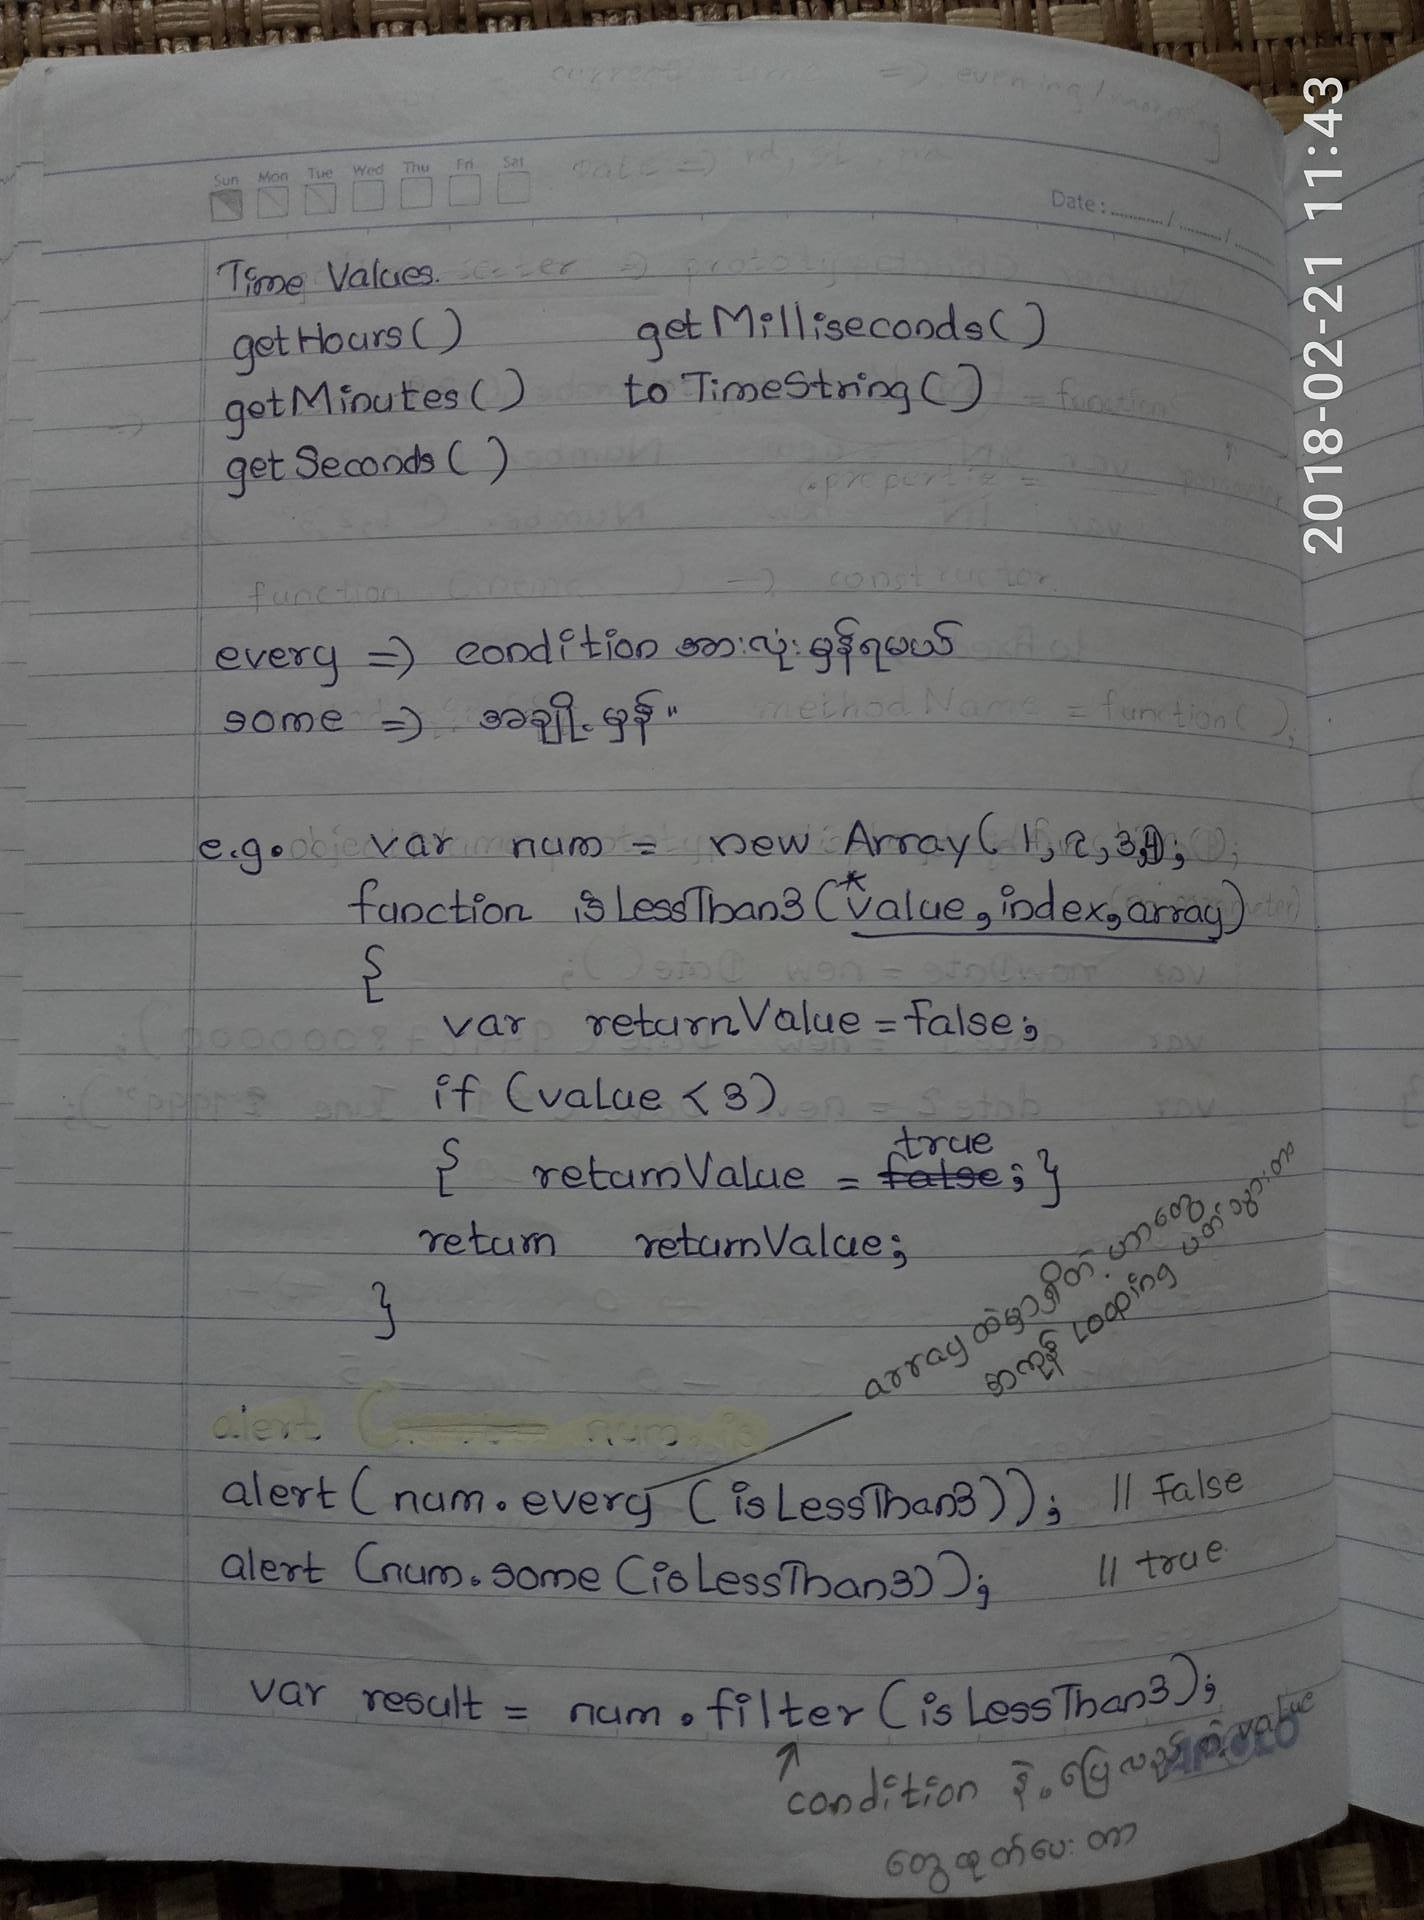 Sun Mon Tue Wed Thu Fri Sat
Date:
2018-02-21 11:43
Time Values.
getHours() getMilliseconds()
getMinutes() toTimeString()
getSeconds()
every => condition အားလုံးမှန်ရမယ်
some => အချို့မှန် "
e.g. var num = new Array(1, 2, 3,4);
function isLessThan3(*value, index, array)
{
var returnValue = false;
if (value < 3)
true
{ returnValue = false; }
return returnValue;
}
array ထဲမှာရှိတဲ့ဟာတွေ
အကုန် Looping ပတ်သွားတာ
alert ( num.is
alert(num.every (isLessThan3)); // False
alert (num.some (isLessThan3)); // true
var result = num.filter(isLessThan3);
condition နဲ့ပြေလည်တဲ့ value
တွေထုတ်ပေးတာ